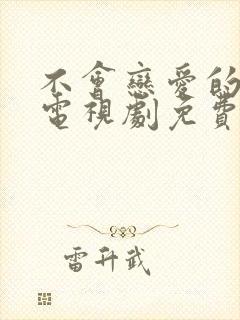 不會戀愛的
電視劇免費
雷升武